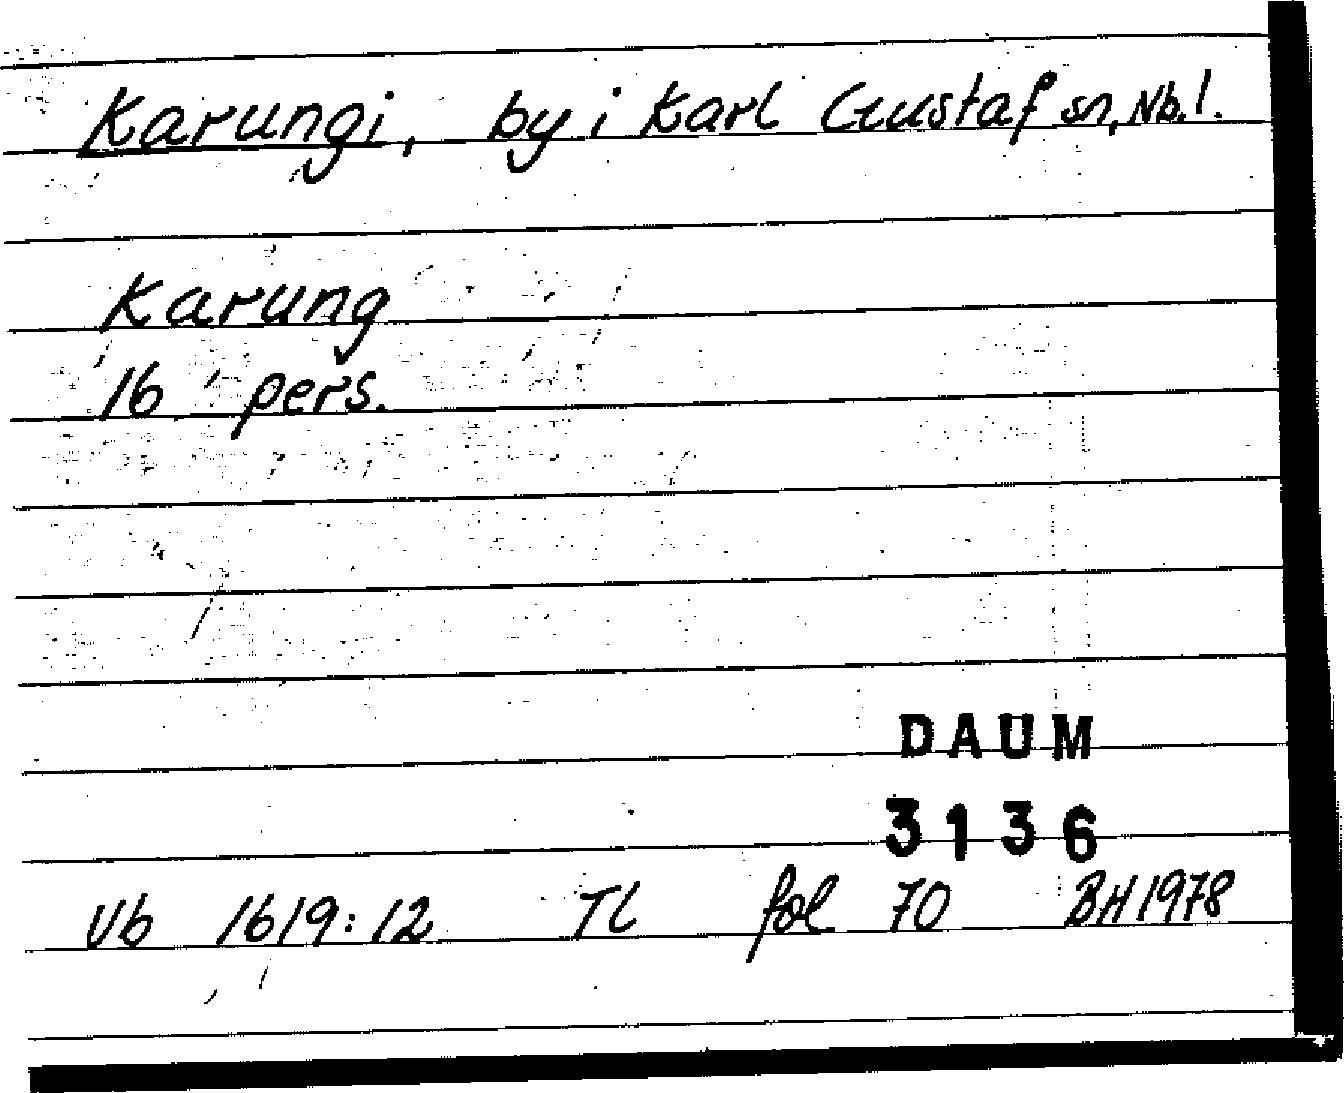 Karungi, by i Karl Gustaf sn, Nb.l.
Karung
16 pers.
DAUM
3136
Vb 1619:12 TL fol 70 BH 1978